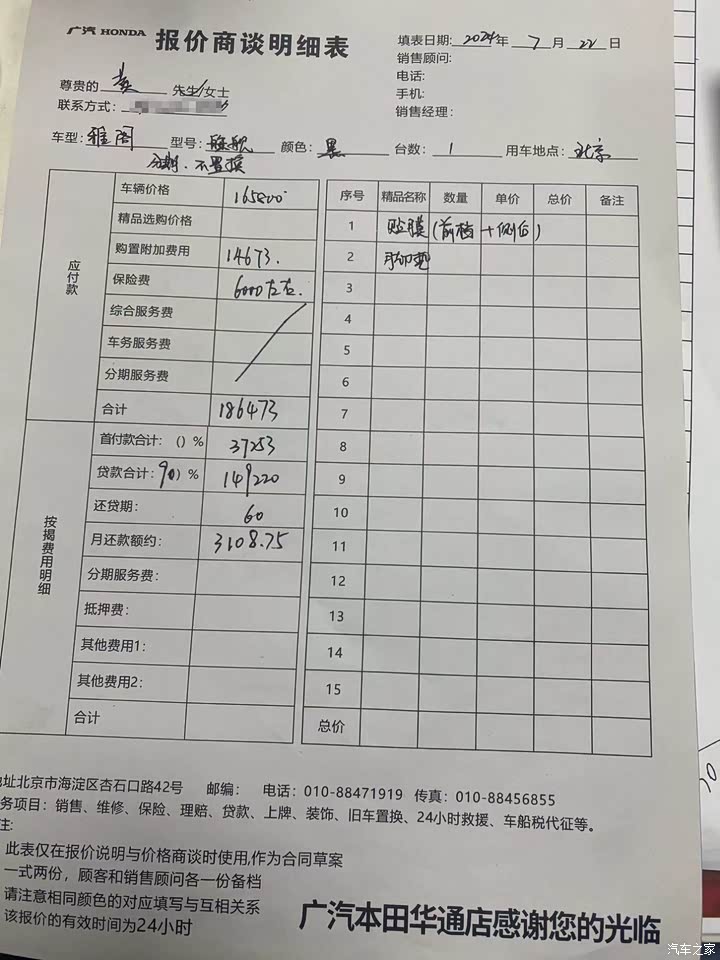 广汽 HONDA 报价商谈明细表
填表日期: 2024年 7月 22日
销售顾问:
电话:
手机:
销售经理:
尊贵的 先生/女士
联系方式:
车型: 雅阁 型号: 颜色: 黑 台数: 1 用车地点: 北京
分期、不置换
应付款
车辆价格 165800
精品选购价格
购置附加费用 14673.
保险费 6000左右.
综合服务费
车务服务费
分期服务费
合计 186473
按揭费用明细
首付款合计: () % 37253
贷款合计: 90) % 149220
还贷期: 60
月还款额约: 3108.75
分期服务费:
抵押费:
其他费用1:
其他费用2:
合计
序号 精品名称 数量 单价 总价 备注
1 贴膜(前档+侧后)
2 脚垫
3
4
5
6
7
8
9
10
11
12
13
14
15
总价
址北京市海淀区杏石口路42号 邮编: 电话: 010-88471919 传真: 010-88456855
务项目: 销售、维修、保险、理赔、贷款、上牌、装饰、旧车置换、24小时救援、车船税代征等。
注:
此表仅在报价说明与价格商谈时使用,作为合同草案
一式两份，顾客和销售顾问各一份备档
请注意相同颜色的对应填写与互相关系
该报价的有效时间为24小时
广汽本田华通店感谢您的光临
汽车之家